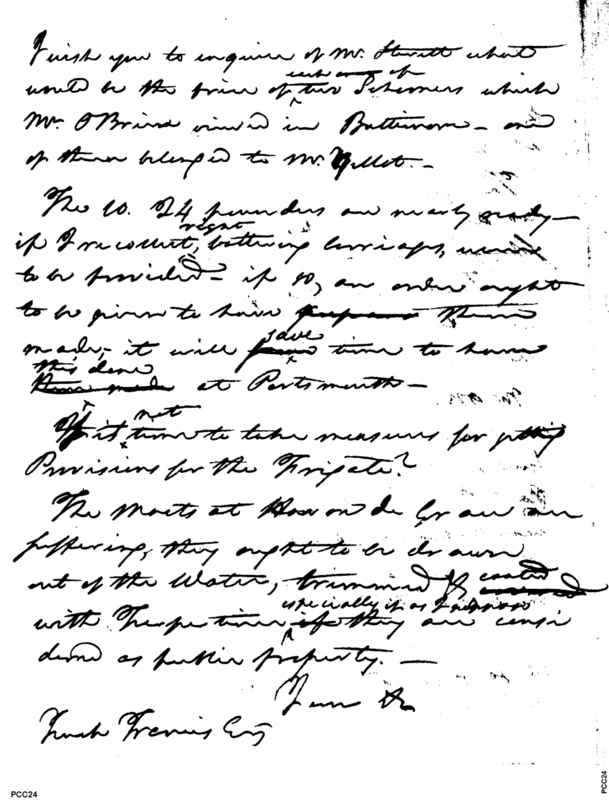 I wish you to inquire of Mr. Sterett what
would be the price of ^each of two Schooners which
Mr. OBrien viewed in Baltimore – one
of them belonged to Mr. Yellot. –
The 10. 24 pounders are nearly ready –
if I recollect right, battering carriages,
to be provided – if so, an order ought
to be given to have them
made; it will save time to have
this done at Portsmouth –
Is it not time to take measures for getting
Provisions for the Frigate?
The Masts at Havre de Grace are
suffering, they ought to be drawn
out of the Water, trimmed & coated
with Turpentine especially if as I suppose they are consi
dered as public property. —
Yours &c
Tench Francis Esq
PCC24
PCC24